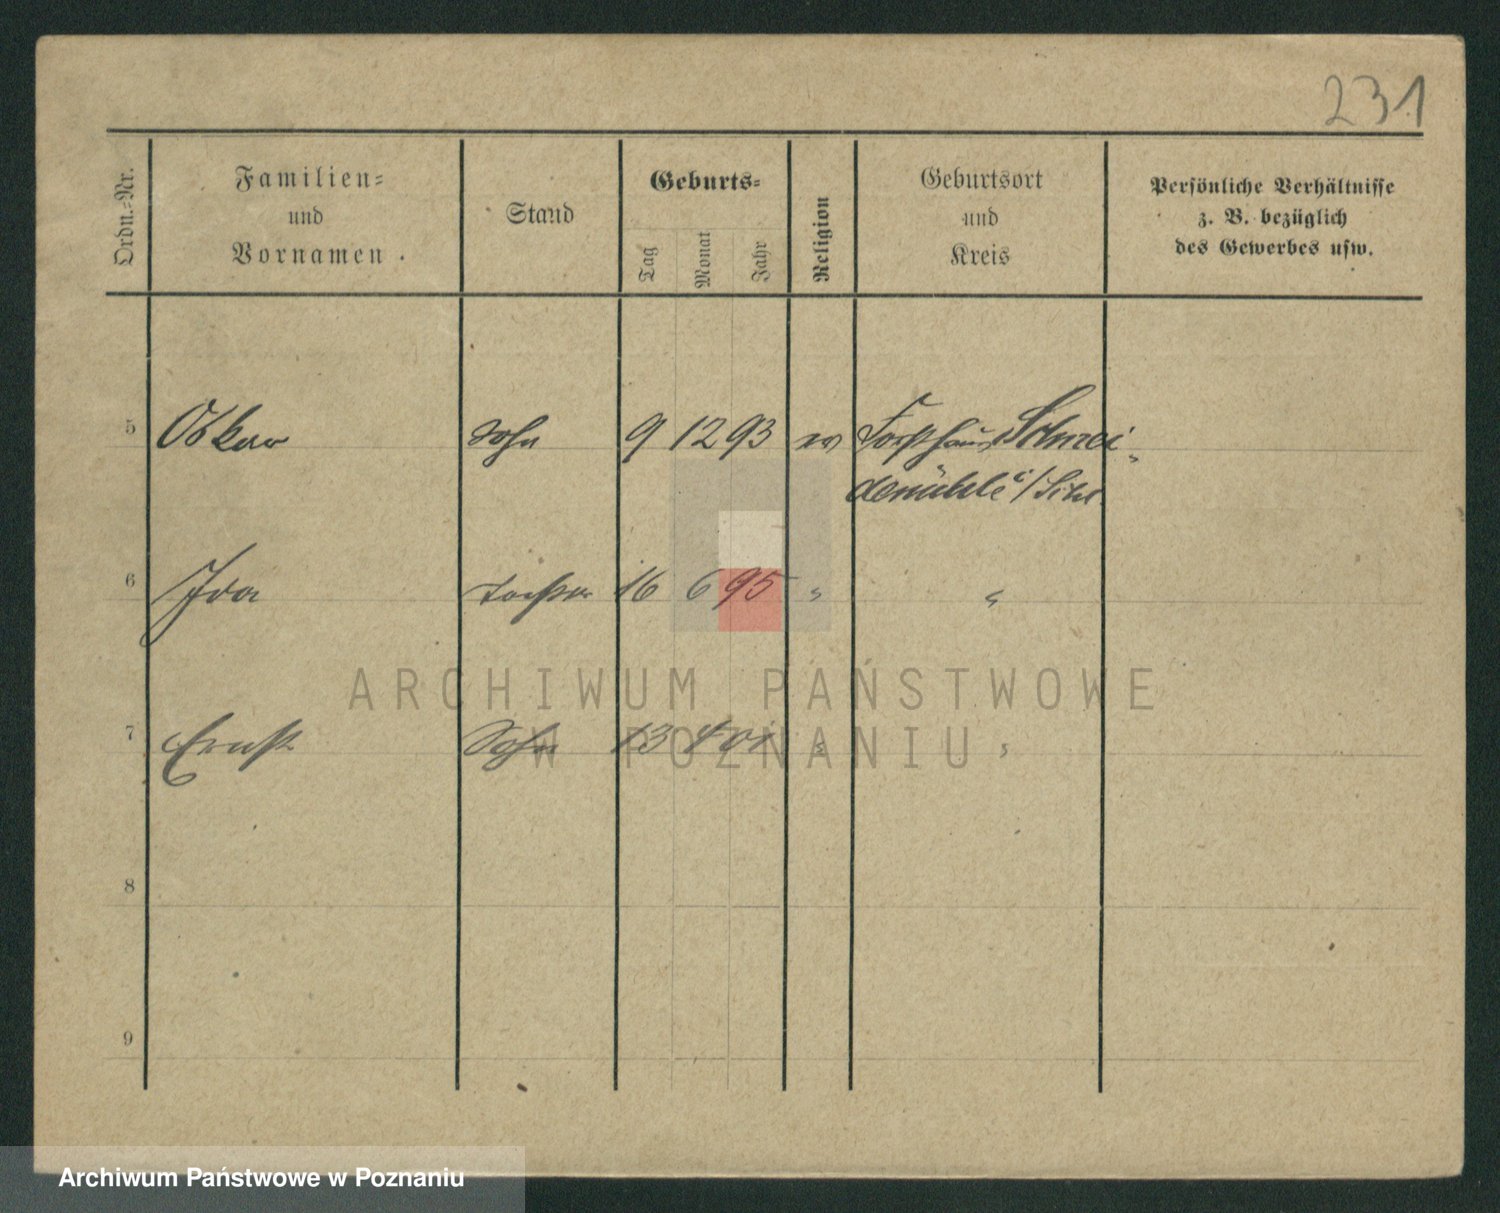 231
Ordn.-Nr.
Familien-
und
Vornamen.
Stand
Geburts-
Tag
Monat
Jahr
Religion
Geburtsort
und
Kreis
Persönliche Verhältnisse
z. B. bezüglich
des Gewerbes usw.
5 Oskar Sohn 9 12 93 ev Forsthaus Schnei-
demühle
6 Ida Tochter 16 6 95 " "
ARCHIWUM PAŃSTWOWE
7 Ernst Sohn 13 4 01 " "
W POZNANIU
8
9
Archiwum Państwowe w Poznaniu